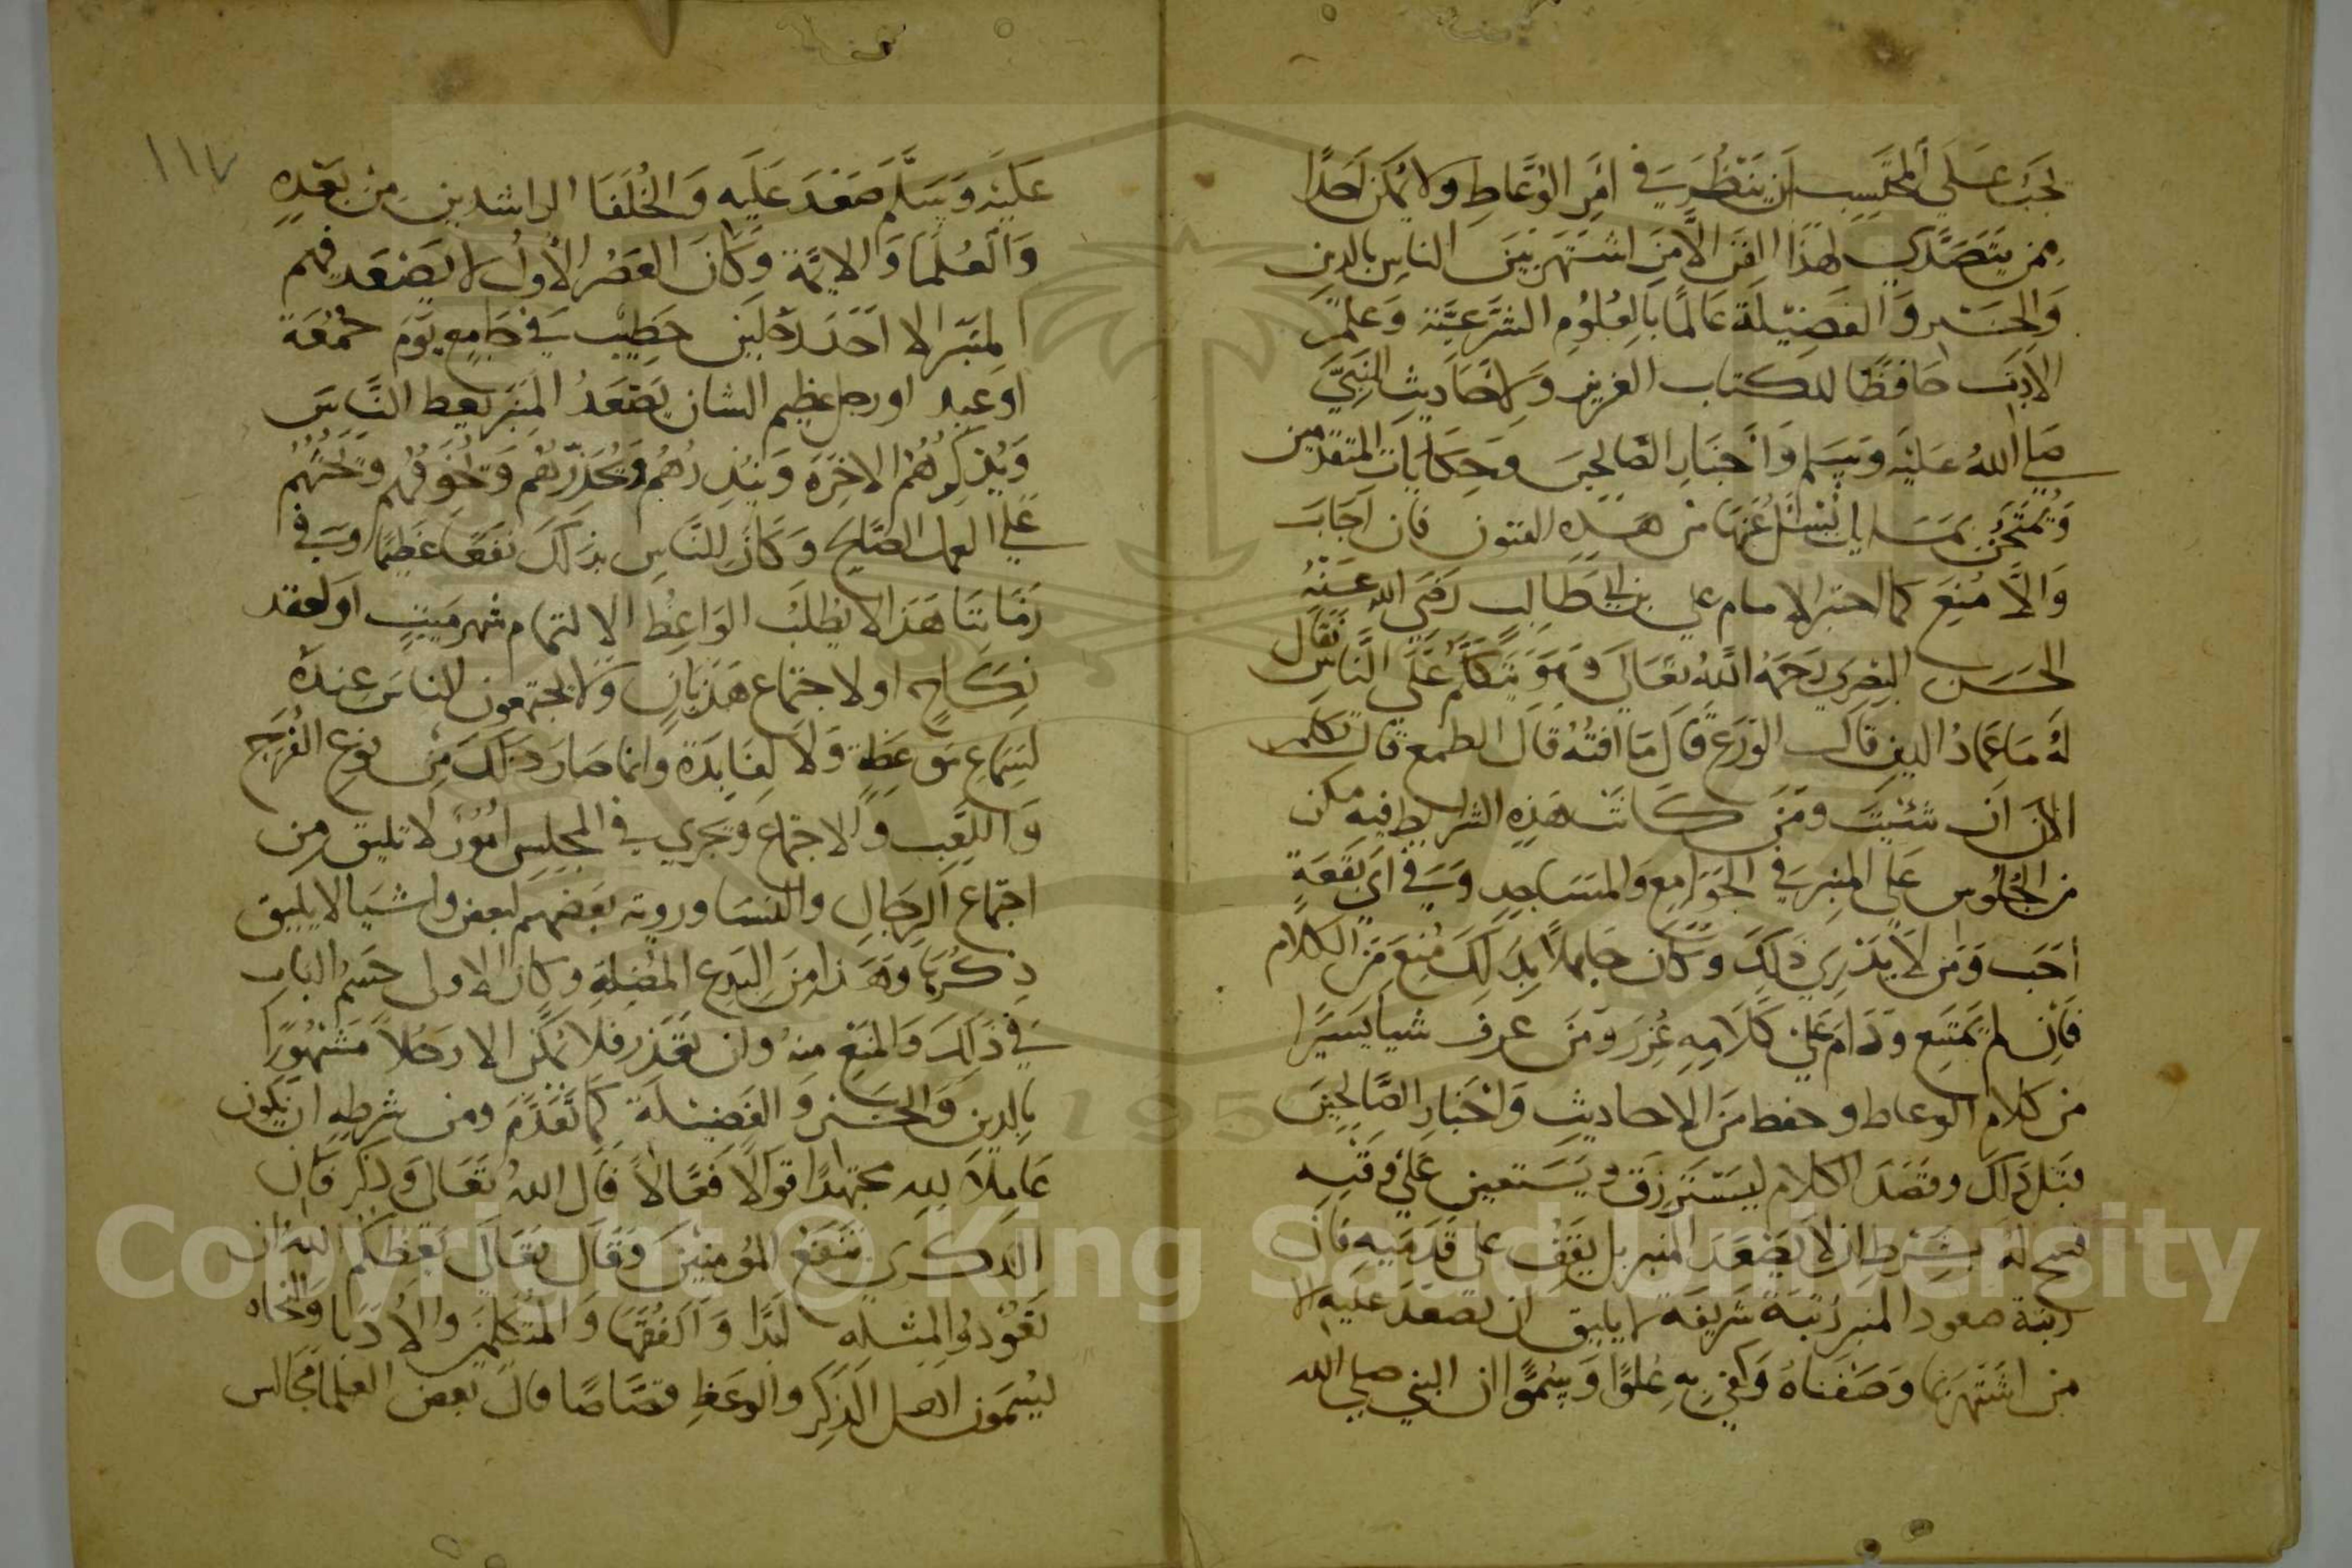 يجب على المحتسب ان ينظر في امر الوعاظ ولا يمكن احدًا
ممن يتصدي لهذا الفن الا من اشتهر بين الناس بالدين
والخير والفضيلة عالمًا بالعلوم الشرعية وعلم
الادب حافظًا للكتاب العزيز ولاحاديث النبي
صلي الله عليه وسلم واخبار الصالحين وحكايات المتقدمين
ويمتحن بمسايل يسئل عنها من هذه الفنون فان اجاب
والا منع كما اختبر الامام علي بن ابي طالب رضي الله عنه
الحسن البصري رحمه الله تعالى وهو يتكلم على الناس فقال
له ما عماد الدين قال الورع قال ما افته قال الطمع قال تكلم
الان ان شئت ومن كانت هذه الشرايط فيه مكن
من الجلوس على المنبر في الجوامع والمساجد وفي اي بقعة
احب ومن لا يدري ذلك وكان جاهلا بذلك منع من الكلام
فان لم يمتنع ودام على كلامه عزر ومن عرف شيا يسيرًا
من كلام الوعاظ وحفظ من الاحاديث واخبار الصالحين
قبل ذلك وقصد الكلام ليسترزق ويستعين على وقته
فسح له بشرط ان لا يصعد المنبر بل يقف على قدميه فان
رتبة صعود المنبر رتبة شريفة لا يليق ان يصعد عليه الا
من اشتهر بما وصفناه وكفي به علوًا وسموًا ان النبي صلي الله
١١٧
عليه وسلم صعد عليه والخلفا الراشدين من بعده
والعلما والايمة وكان العصر الاول لا يصعد فيهم
المنبر الا احد رجلين خطيب في جامع يوم جمعة
او عيد او رجل عظيم الشان يصعد المنبر يعظ الناس
ويذكرهم الاخرة وينذرهم ويحذرهم ويخوفهم ويحثهم
علي العمل الصالح وكان للناس بذلك نفعًا عظيما وفي
زماننا هذا لا يطلب الواعظ الا لتمام شهر ميت او لعقد
نكاح او لاجتماع هذيان ولا يجتمعون الناس عنده
لسماع موعظة ولا لفايدة وانما صار ذلك من نوع الفرج
واللعب والاجتماع وتجري في المجلس امور لا تليق من
اجتماع الرجال والنسا وروية بعضهم لبعض واشيا لا يليق
ذكرها وهذا من البدع المضلة وكان الاولى حسم الباب
في ذلك والمنع منه وان تعذر فلا يمكن الا رجلا مشهورًا
بالدين والخير والفضيلة كما تقدم ومن شرطه ان يكون
عاملا لله مجتهدًا قوالا فعالا قال الله تعالى وذكر فان
الذكري تنفع المؤمنين وقال تعالى يعظكم الله ان
تعودوا لمثله ابدا والفقها والمتكلمين والادبا والنحاه
ليسمون اهل الذكر والوعظ قصاصًا قال بعض العلما مجالس